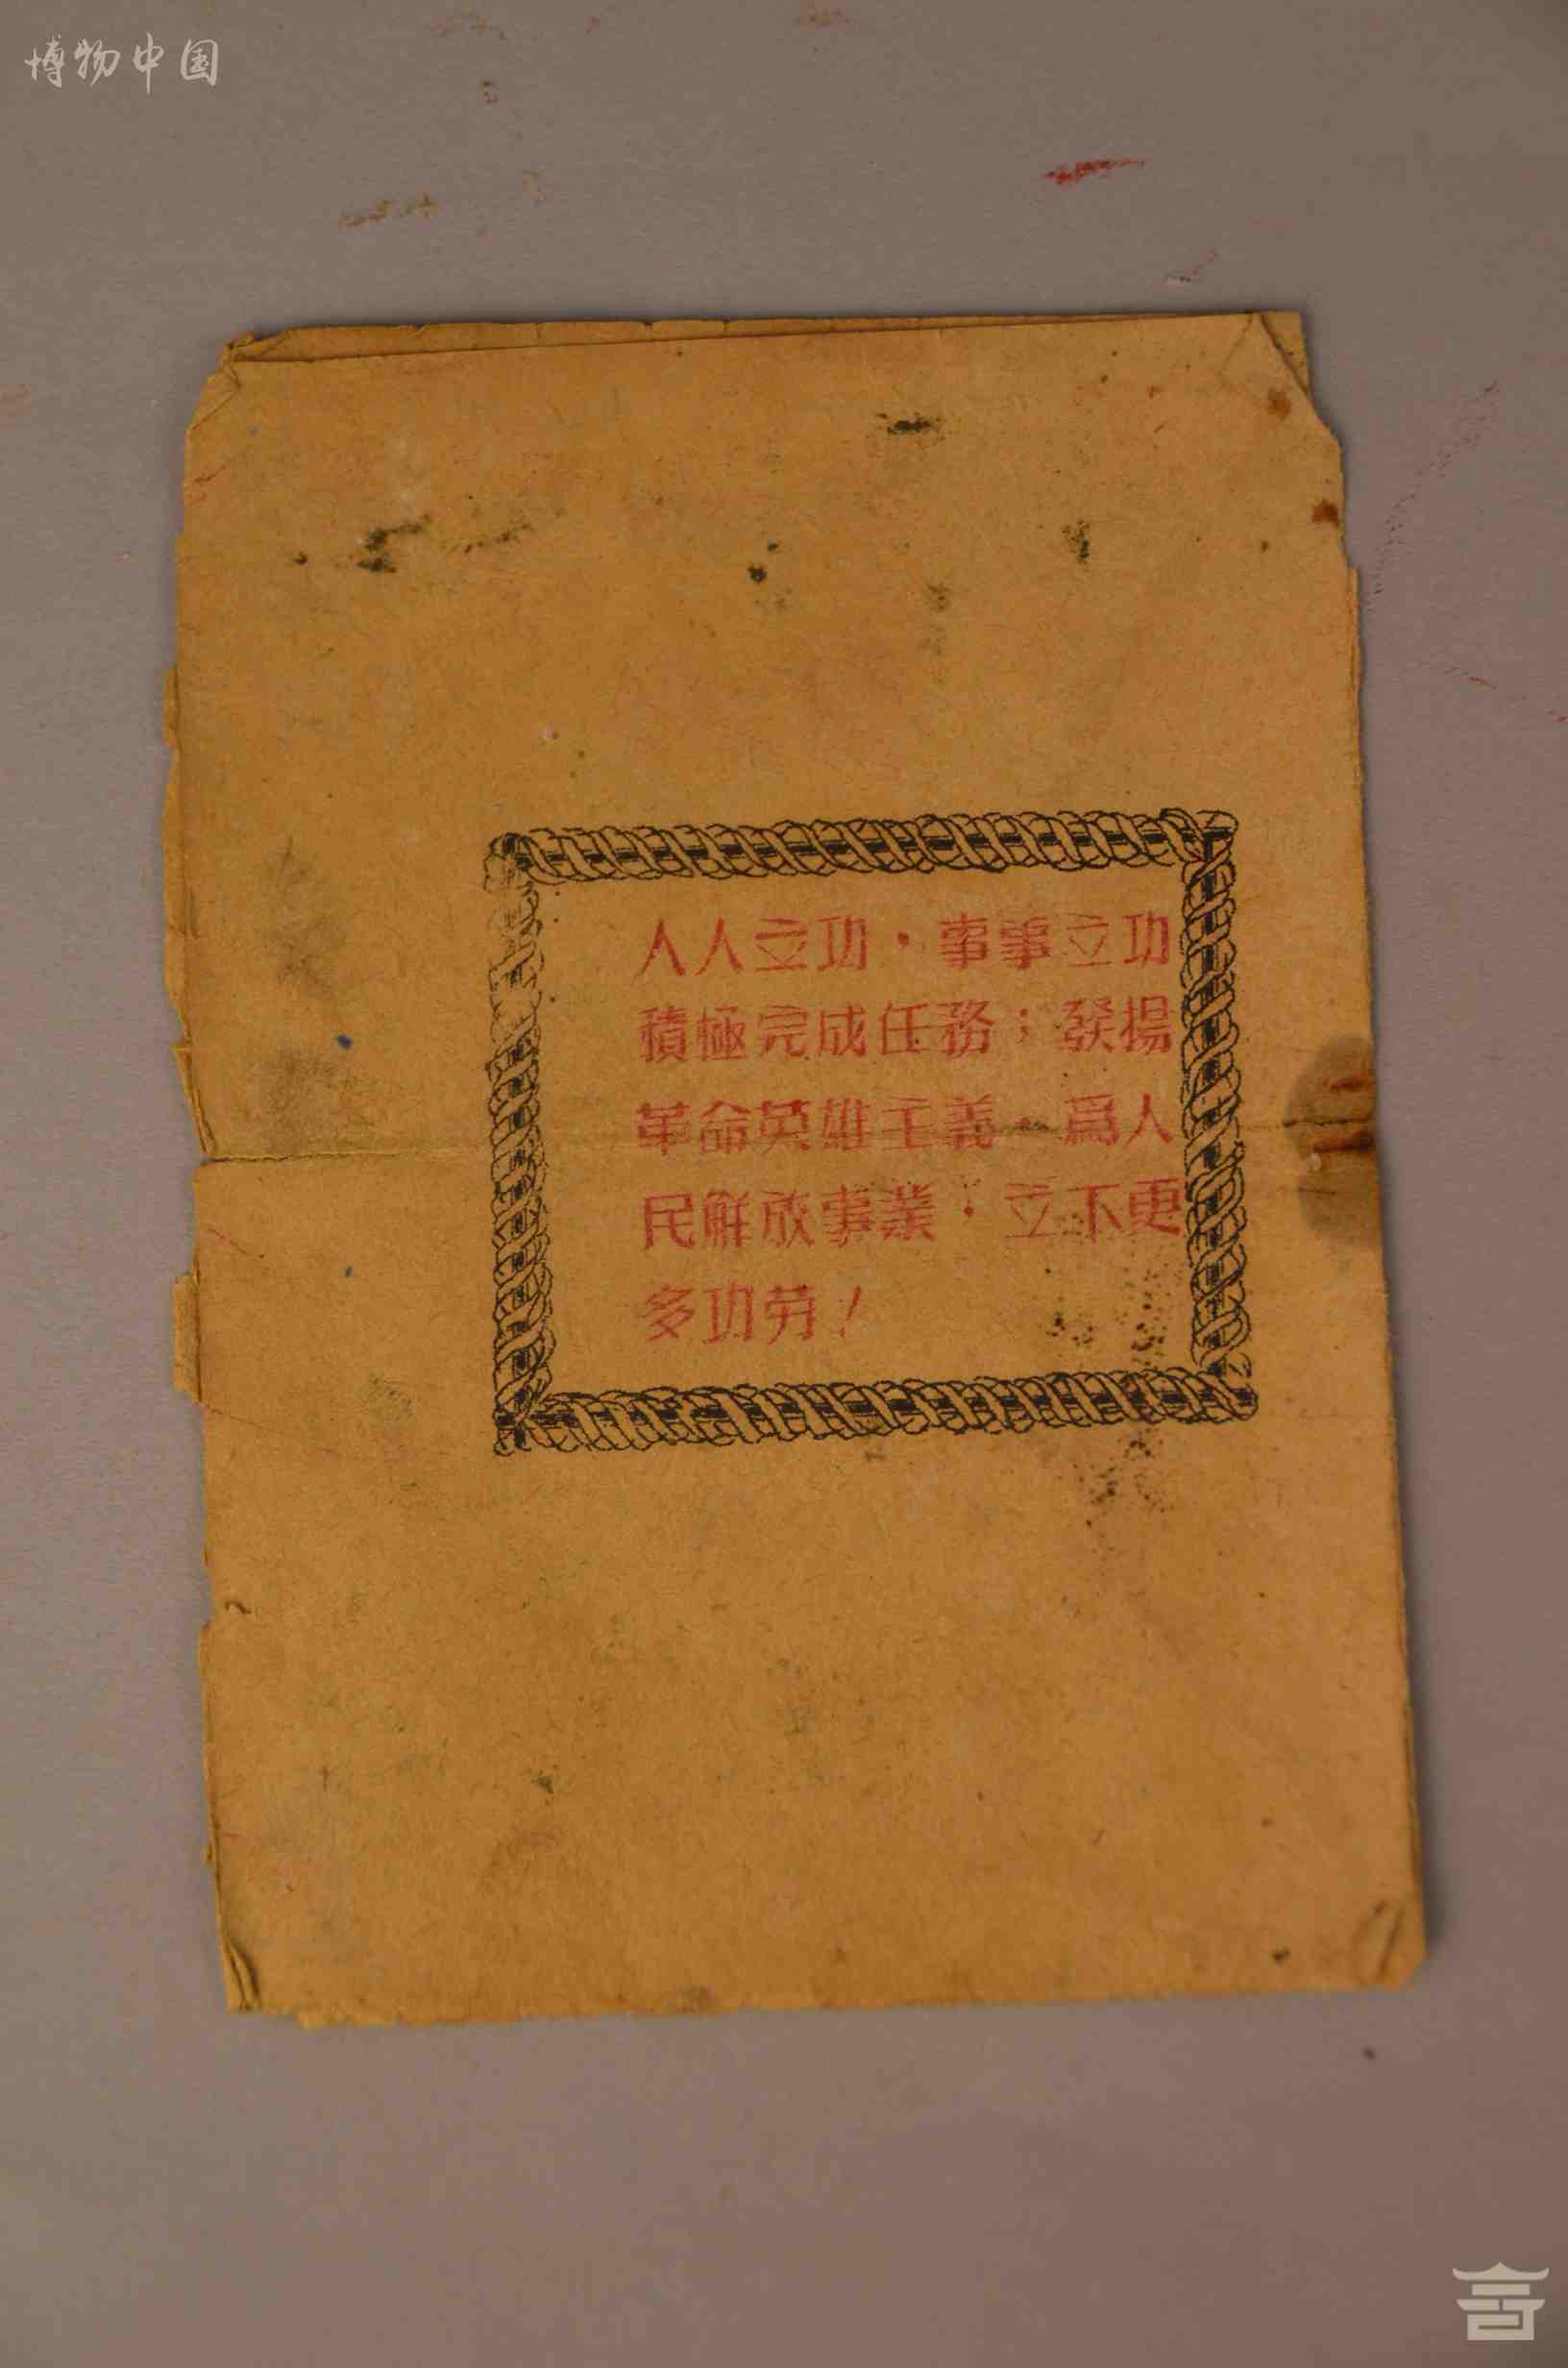 博物中国
人人立功·事事立功
積極完成任務；發揚
革命英雄主義·爲人
民解放事業·立下更
多功劳！